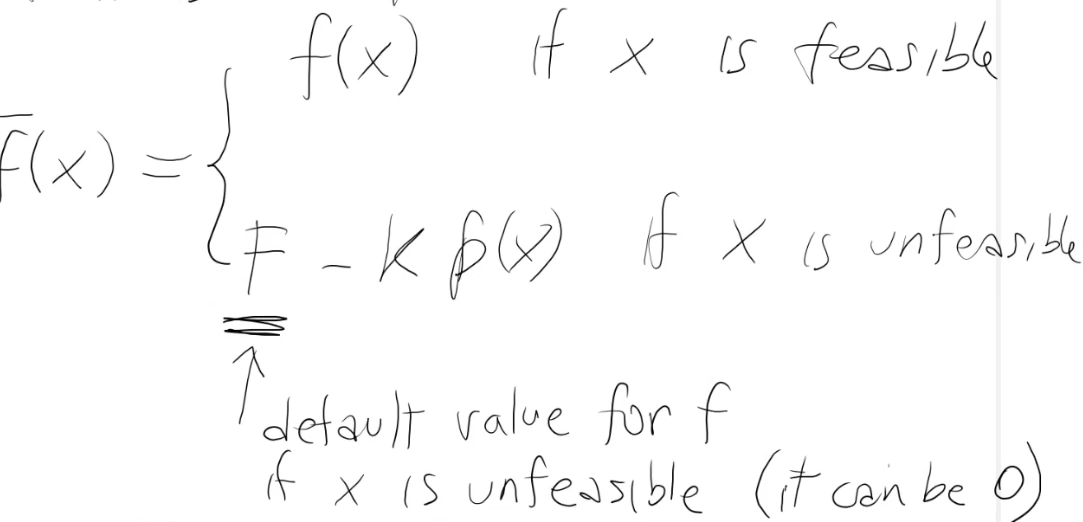 f(x) if x is feasible
F̅(x) = {
F - K p(x) if x is unfeasible
↑ default value for f
if x is unfeasible (it can be 0)